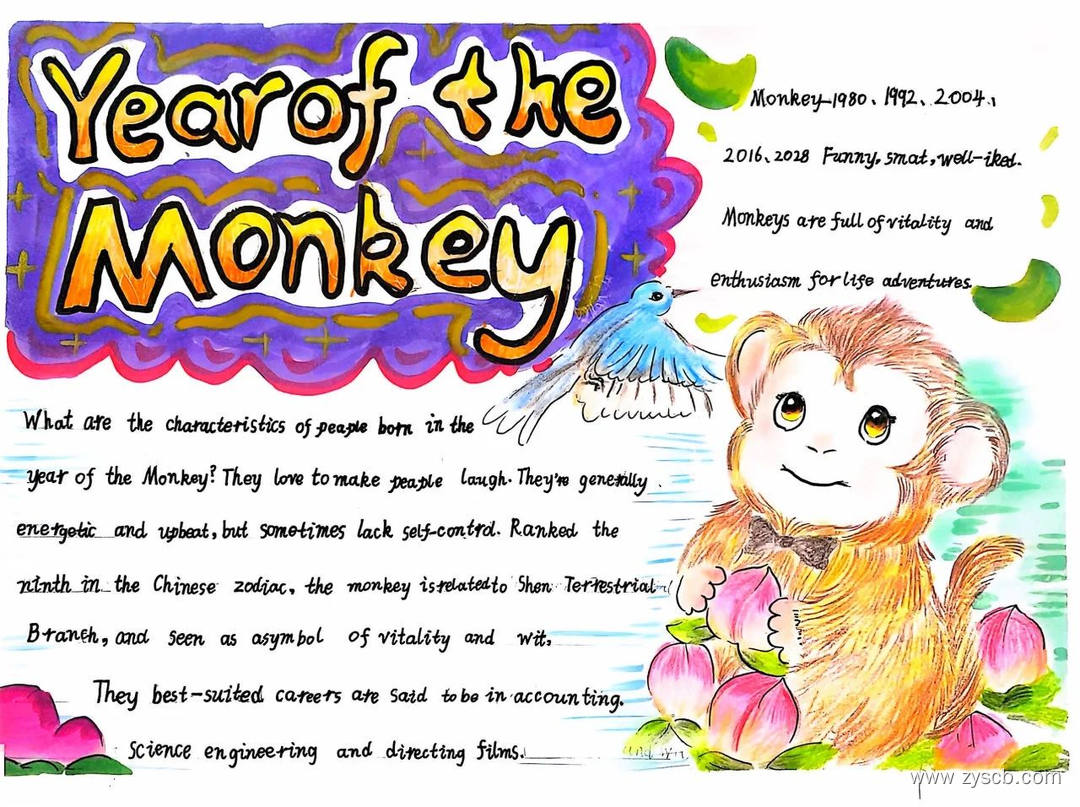 Year of the
Monkey
Monkey-1980、1992、2004、
2016、2028 Funny, smat, well-iked.
Monkeys are full of vitality and
enthusiasm for life adventures.
What are the characteristics of people born in the
year of the Monkey? They love to make people laugh. They're generally
energetic and upbeat, but sometimes lack self-control. Ranked the
ninth in the Chinese zodiac, the monkey is related to Shen Terrestrial
Branch, and seen as asymbol of vitality and wit,
They best-suited careers are said to be in accounting.
Science engineering and directing films.
www zyscb.com